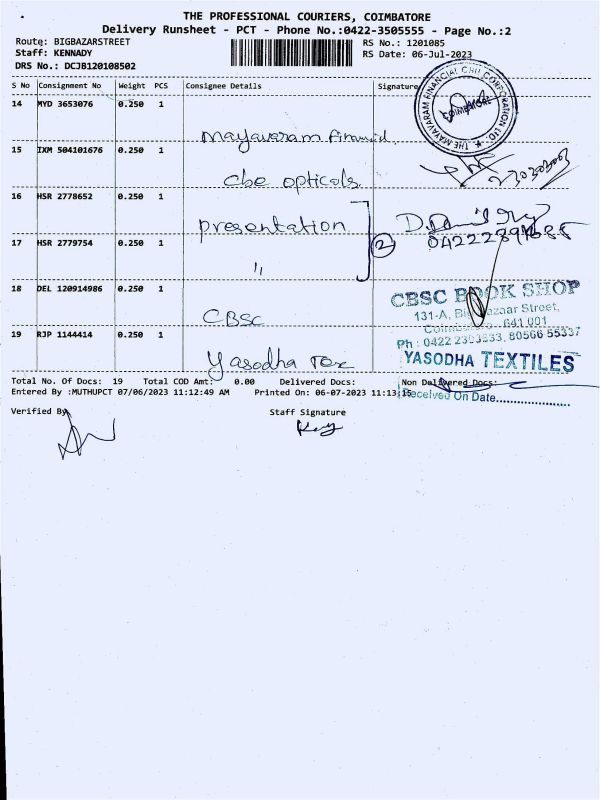 THE PROFESSIONAL COURIERS, COIMBATORE
Delivery Runsheet - PCT - Phone No.:0422-3505555 - Page No.:2
Route: BIGBAZARSTREET RS No.: 1201085
Staff: KENNADY RS Date: 06-Jul-2023
DRS No.: DCJB120108502
S No Consignment No Weight PCS Consignee Details Signature
THE MAYAVARAM FINANCIAL CHIT CORPORATION LTD.
COIMBATORE
14 MYD 3653076 0.250 1
Mayavaram Financial
15 IXM 504101676 0.250 1
Cbe opticals
16 HSR 2778652 0.250 1
presentation
2
17 HSR 2779754 0.250 1
"
18 DEL 120914986 0.250 1
CBSC
CBSC BOOK SHOP
131-A, Big Bazaar Street,
Coimbatore 641 001
Ph : 0422 80566 55337
19 RJP 1144414 0.250 1
Yasodha Tex
YASODHA TEXTILES
Total No. Of Docs: 19 Total COD Amt: 0.00 Delivered Docs: Non Delivered Docs:
Entered By :MUTHUPCT 07/06/2023 11:12:49 AM Printed On: 06-07-2023 11:13:15
Received On Date
Verified By Staff Signature